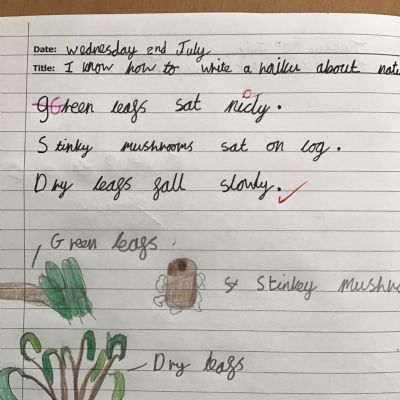 Date: Wednesday 2nd July
Title: I know how to write a haiku about natu
gGreen leafs sat nicly.
Stinky mushrooms sat on log.
Dry leafs fall slowly.
Green leafs
St Stinkey mushro
Dry leafs